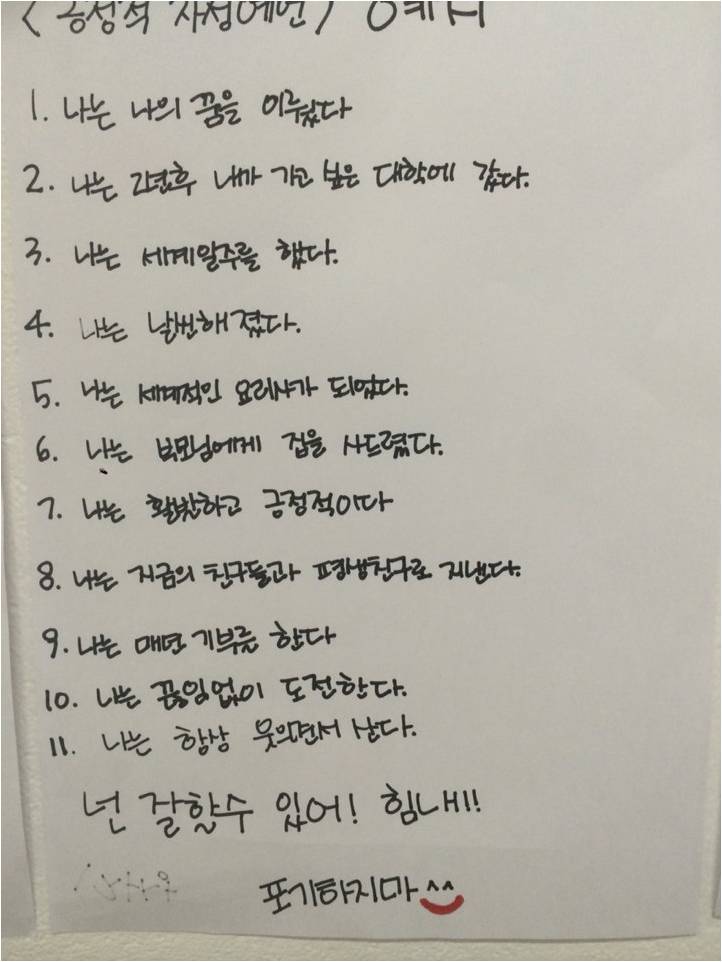 <긍정적 자성예언> 예시
1. 나는 나의 꿈을 이뤘다
2. 나는 2년후 내가 가고 싶은 대학에 갔다.
3. 나는 세계일주를 했다.
4. 나는 날씬해졌다.
5. 나는 세계적인 요리사가 되었다.
6. 나는 부모님에게 집을 사드렸다.
7. 나는 활발하고 긍정적이다
8. 나는 지금의 친구들과 평생친구로 지낸다.
9. 나는 매년 기부를 한다
10. 나는 끊임없이 도전한다.
11. 나는 항상 웃으면서 산다.
넌 잘할수 있어! 힘내!!
포기하지마^^